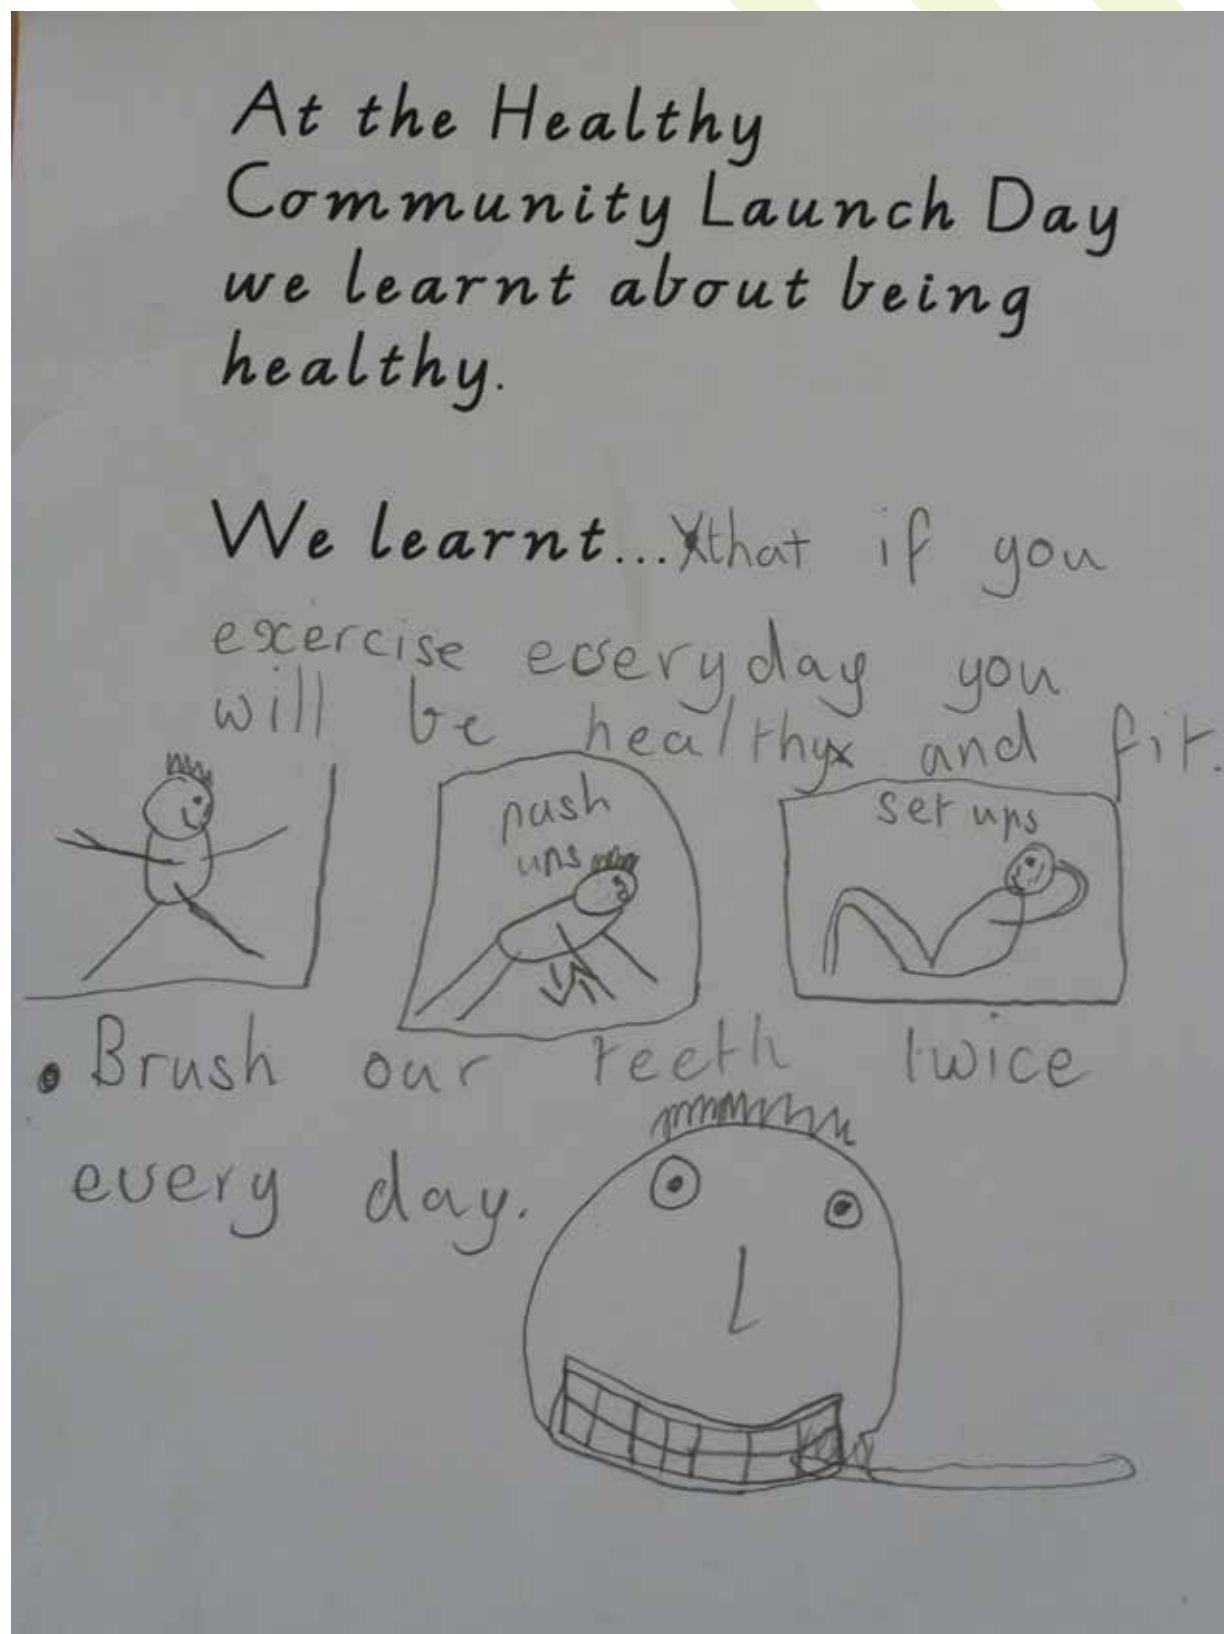 At the Healthy
Community Launch Day
we learnt about being
healthy.
We learnt... that if you
exercise everyday you
will be healthy and fit.
push
ups
set ups
• Brush our teeth twice
every day.